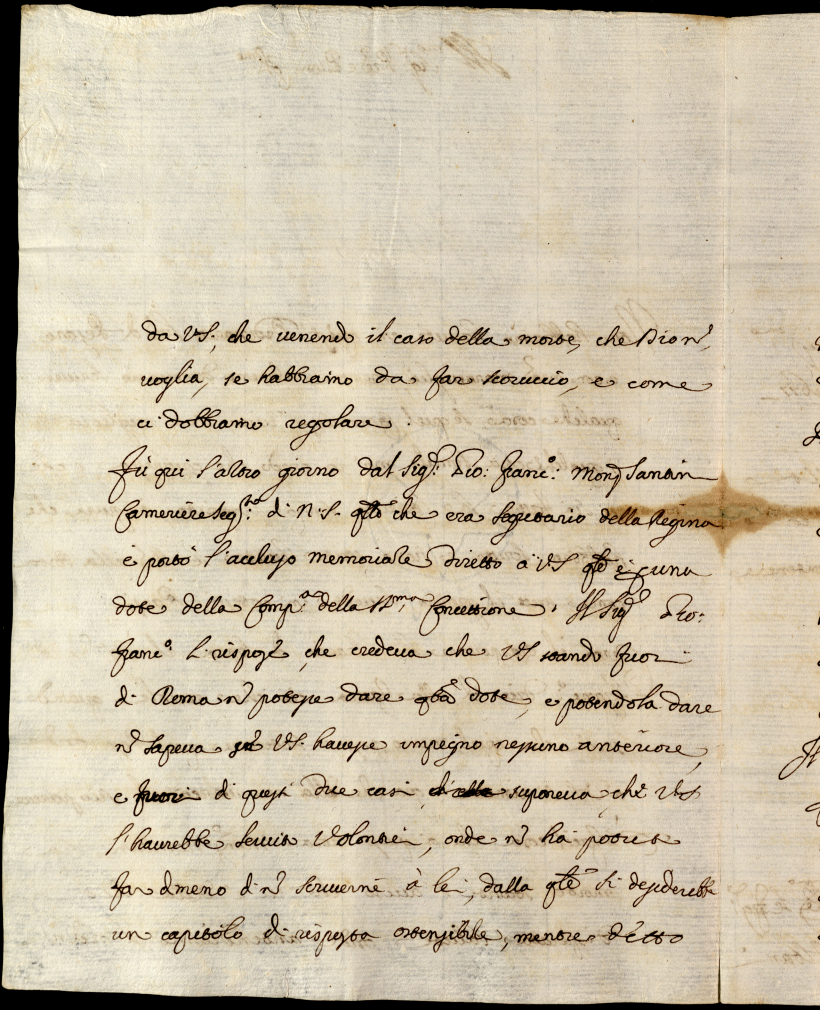 da VS, che venendo il caso della morte, che Dio nō
voglia, se habbiamo da far scoruccio, e come
ci dobbiamo regolare.
Fù qui l'altro giorno dal Sig.r Gio: Franc.o: Mons.r Santin
Cameriere Seg.to d. N. S. q̃to che era Segretario della Regina
e portò l'accluso memoriale diretto a VS q̃le è p una
dote della Comp.a della SS.ma Concettione. Il Sig.r Gio:
Franc.o li rispose che credeva che VS stando fuori
di Roma nō potesse dare q̃ta dote, e potendola dare
nō sapeva se VS. havesse impegno nessuno anteriore,
e fuori di questi due casi suponeva che VS
l'haurebbe servito volontieri, onde nō ha potuto
far dmeno di nō scriverne à lei, dalla q̃le si desiderebbe
un capitolo di risposta ostensibile, mentre detto